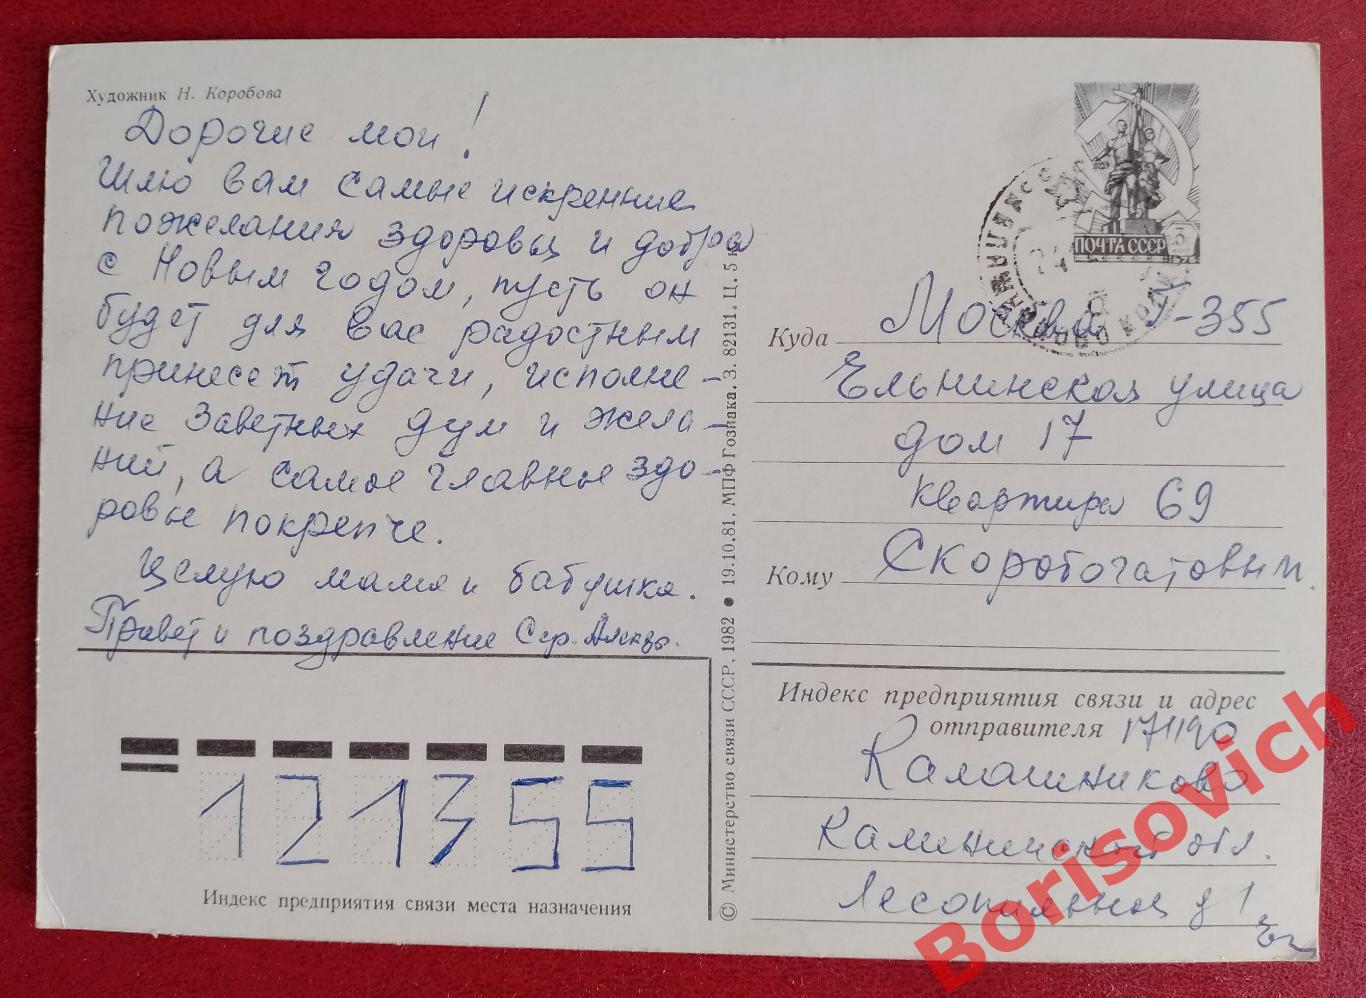 Художник Н. Коробова
Дорогие мои!
Шлю вам самые искренние
пожелания здоровья и добра
с Новым годом, пусть он
будет для вас радостным
принесет удачи, исполне-
ние заветных дум и жела-
ний, а самое главное здо-
ровье покрепче.
Целую мама и бабушка.
Привет и поздравление Сер.
121355
Индекс предприятия связи места назначения
© Министерство связи СССР, 1982 • 19.10.81. МПФ Гознака. З. 82131. Ц. 5 к.
ПОЧТА СССР 3
Куда Москва 355
Ельнинская улица
дом 17
квартира 69
Кому Скоробогатовым.
Индекс предприятия связи и адрес
отправителя 171190
Калашниково
Калининской обл.
Лесопильная д 1
Borisovich